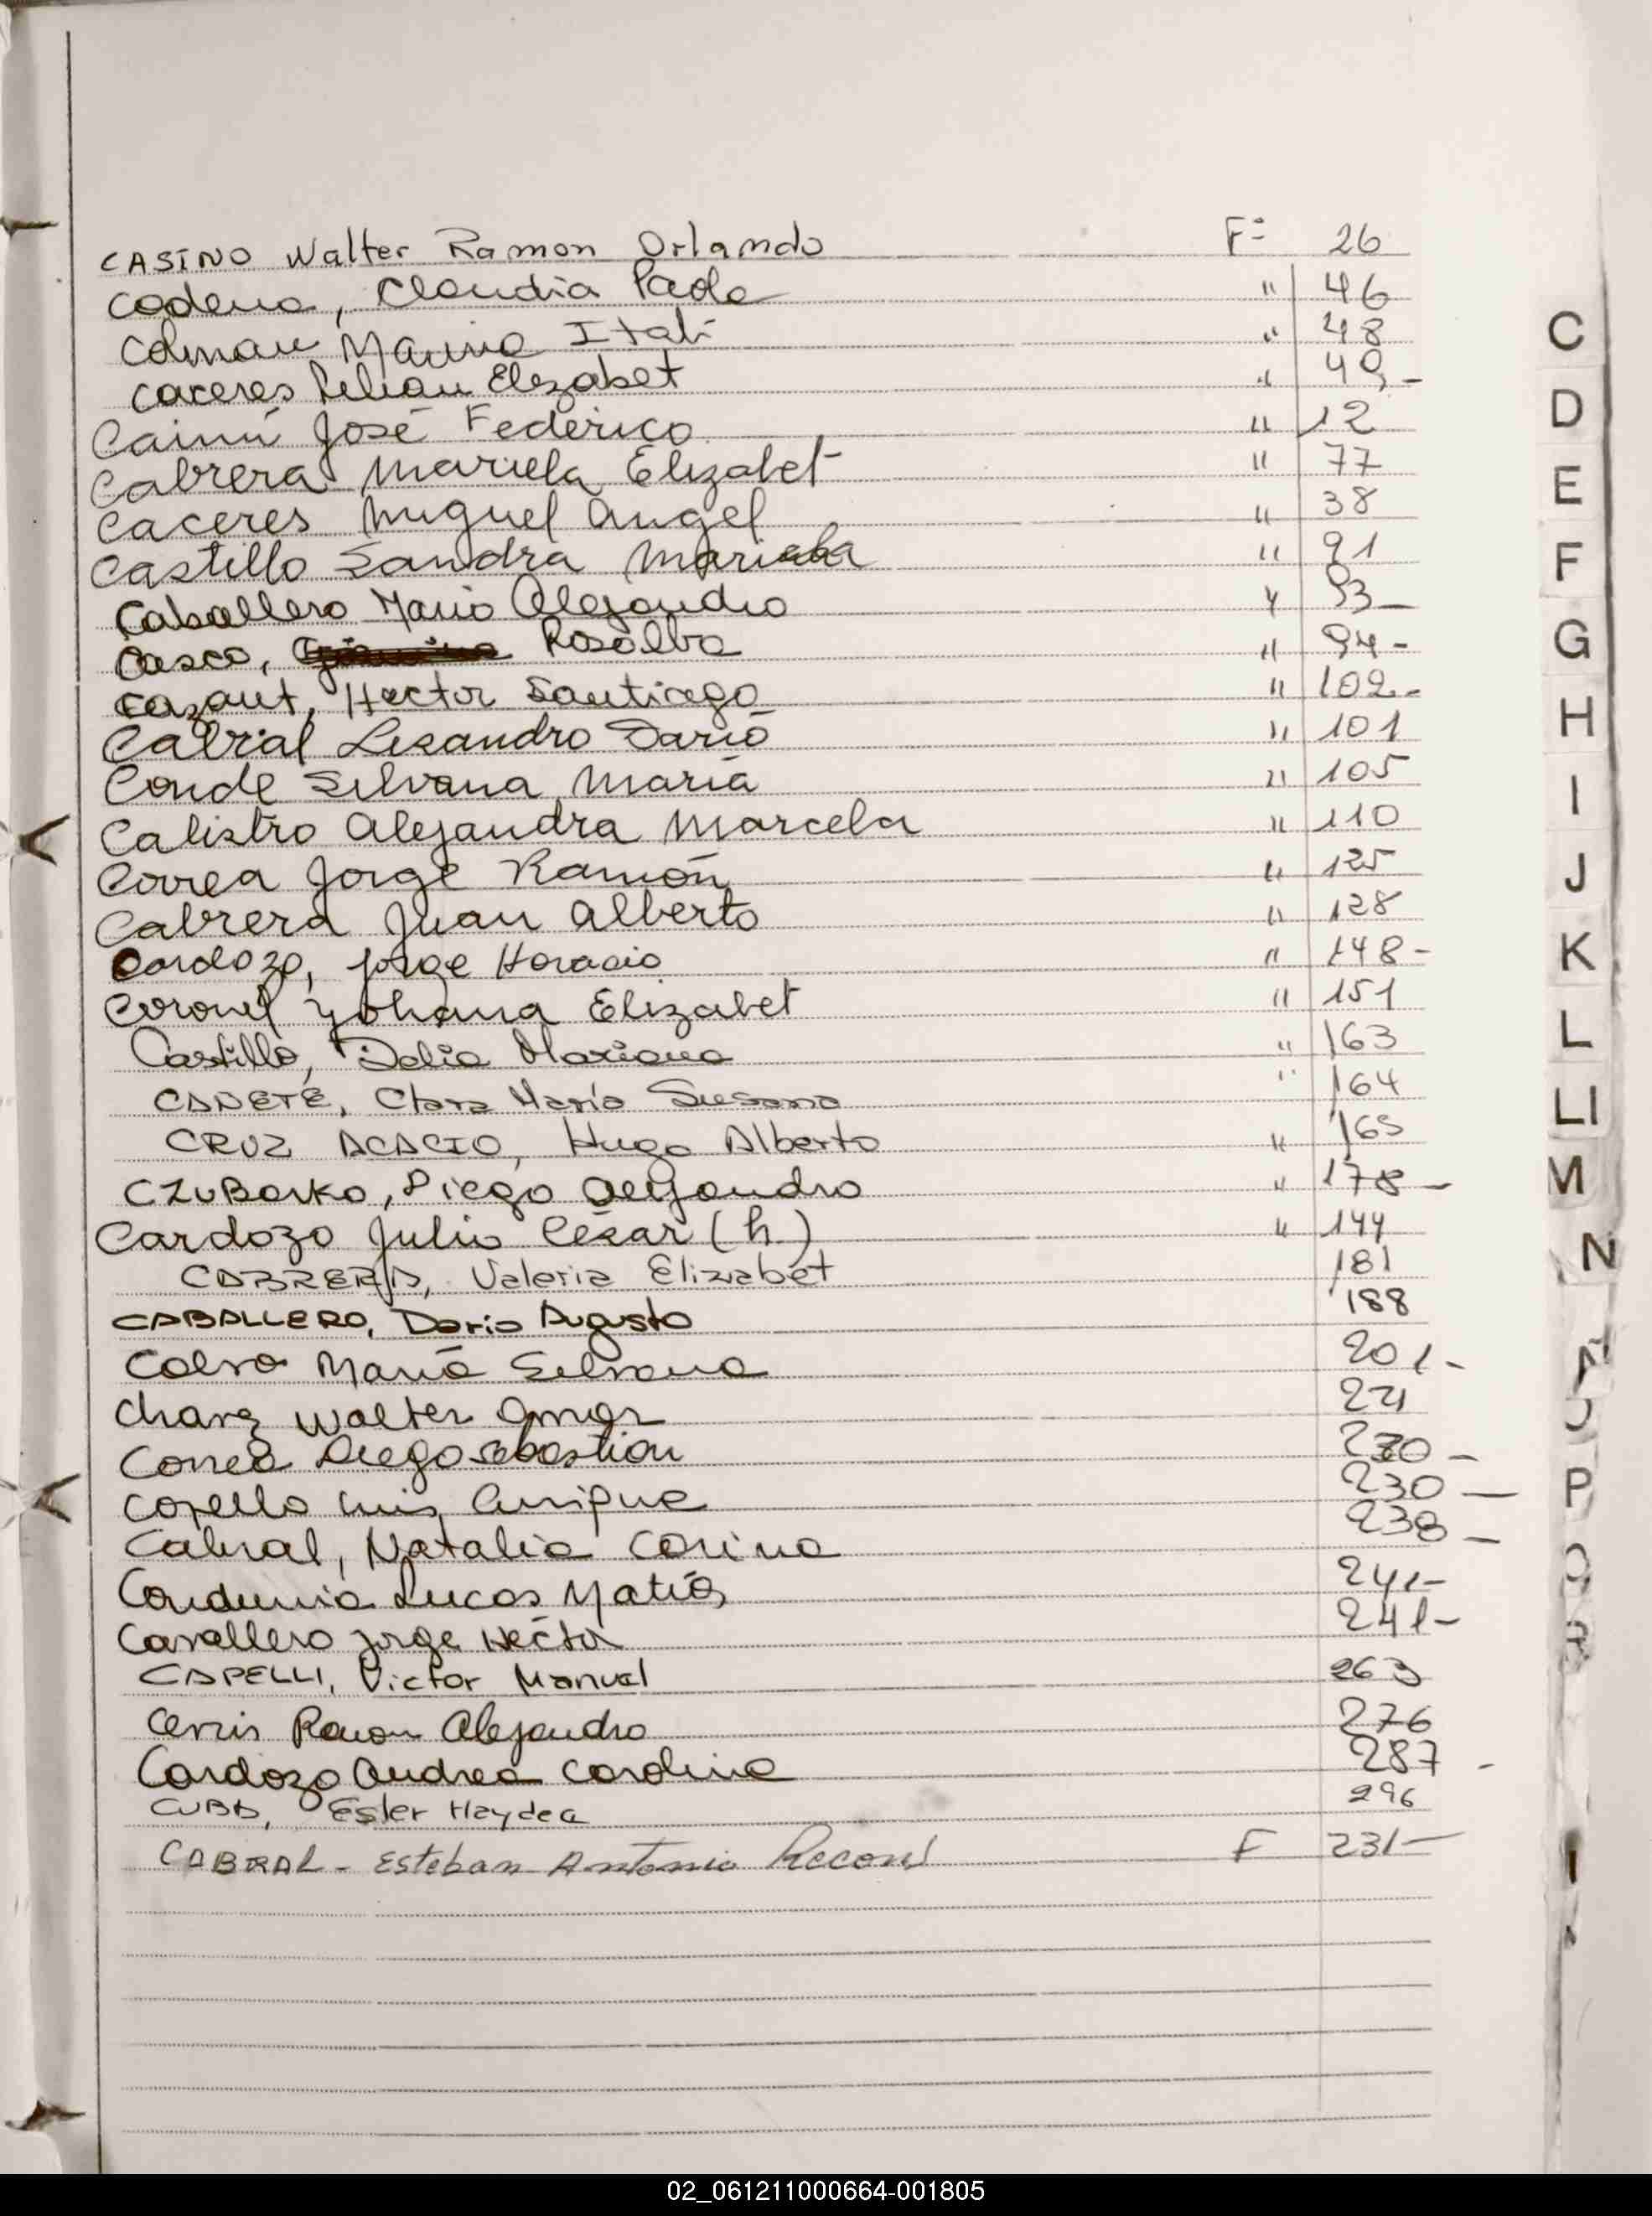 CASINO Walter Ramon Orlando F= 26
Codena, Claudia Paola " 46
Colman Marina Itatí " 48
Caceres Lilian Elizabet " 49,-
José Federico " 12
Cabrera Mariela Elizabet " 77
Caceres Miguel Angel " 38
Castillo Sandra Mariela " 91
Caballero Mario Alejandro " 93-
Casco, Rosalba " 94-
Cazaut, Hector Santiago " 102-
Cabral Lisandro Darió " 101
Conde Silvana María " 105
Calistro Alejandra Marcela " 110
Correa Jorge Ramón " 125
Cabrera Juan Alberto " 128
Cardozo, Jorge Horacio " 148-
Coronel Yohana Elizabet " 151
Castillo, Delia Mariana " 163
CAÑETE, Clara María Susana " 164
CRUZ ACACIO, Hugo Alberto " 165
CZUBARKO, Diego Alejandro " 178-
Cardozo Julio César (h) " 144
CABRERA, Valeria Elizabet 181
CABALLERO, Dario Augusto 188
Calvo María Silvana 201-
Chavez Walter Omar 221
Correa Diego Sebastian 230-
Copello Luis Enrique 230-
Cabral, Natalia Corina 238-
Lucas Matías 241-
Cavallero Jorge Hector 241-
CAPELLI, Victor Manuel 263
Ramon Alejandro 276
Cardozo Andrea Carolina 287 -
CUBA, Ester Haydea 296
CABRAL - Esteban Antonio F 231-
C
D
E
F
G
H
I
J
K
L
LI
M
N
Ñ
O
P
Q
R
02_061211000664-001805